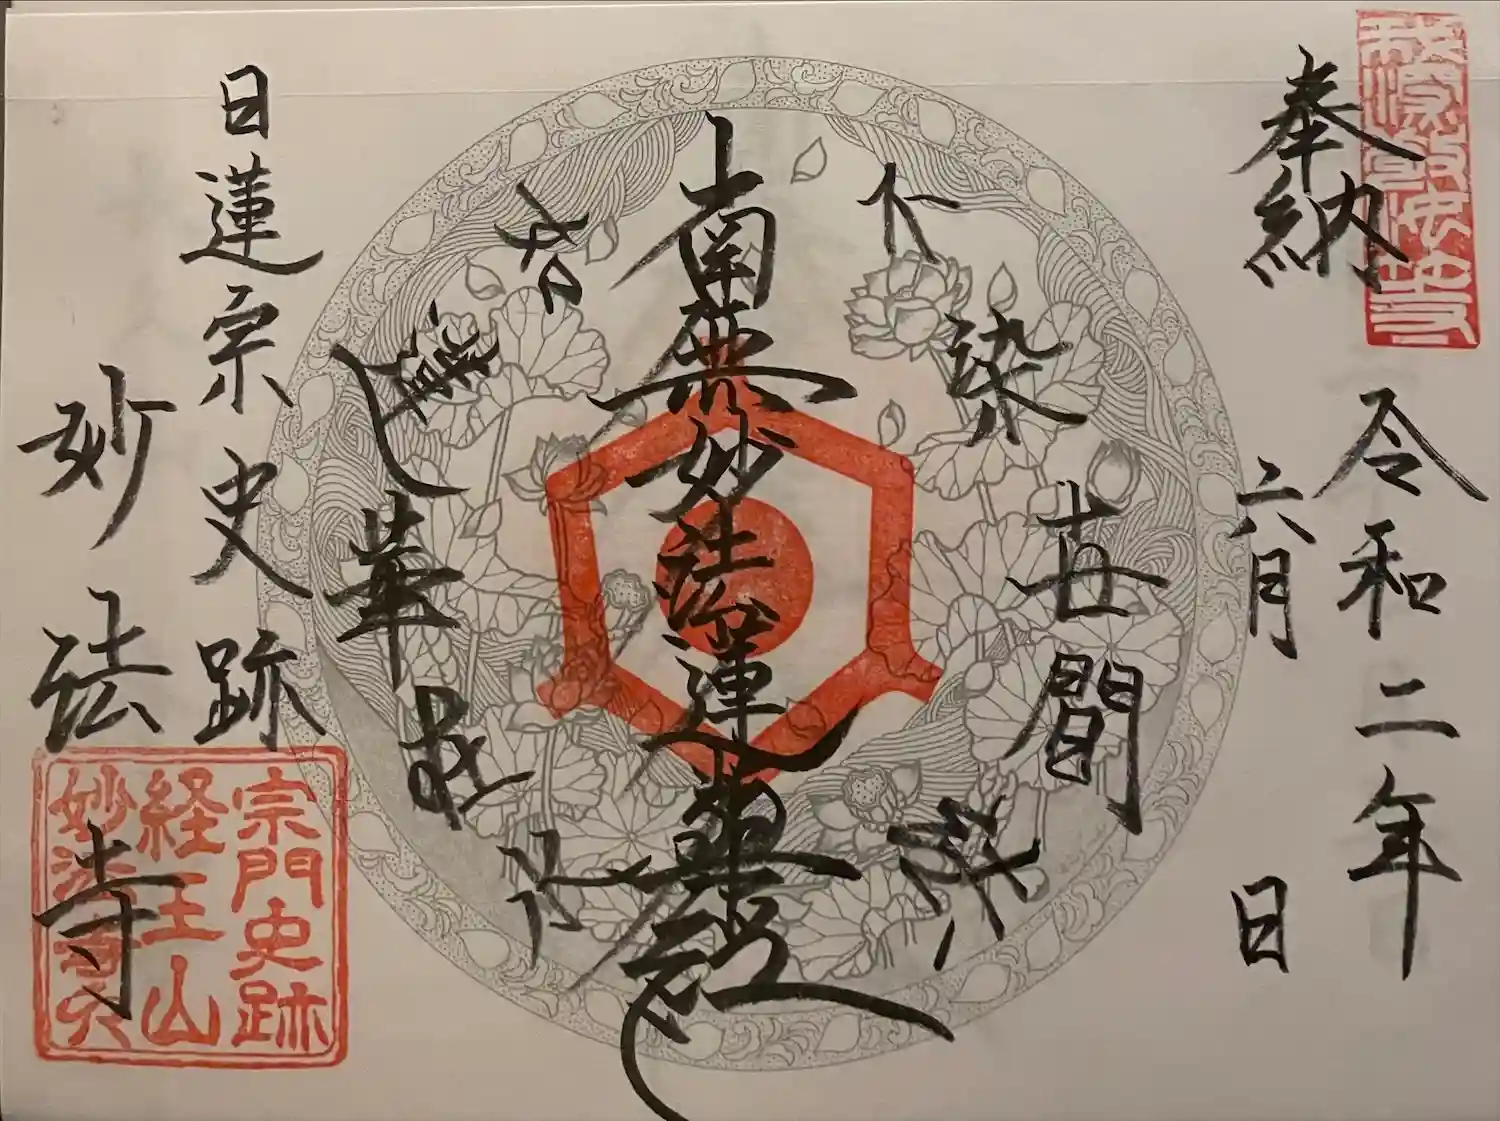 奉納
令和二年
六月 日
不染世間法
南無妙法蓮華経
如蓮華在水
日蓮宗史跡
妙法寺
宗門史跡
経王山
妙法寺